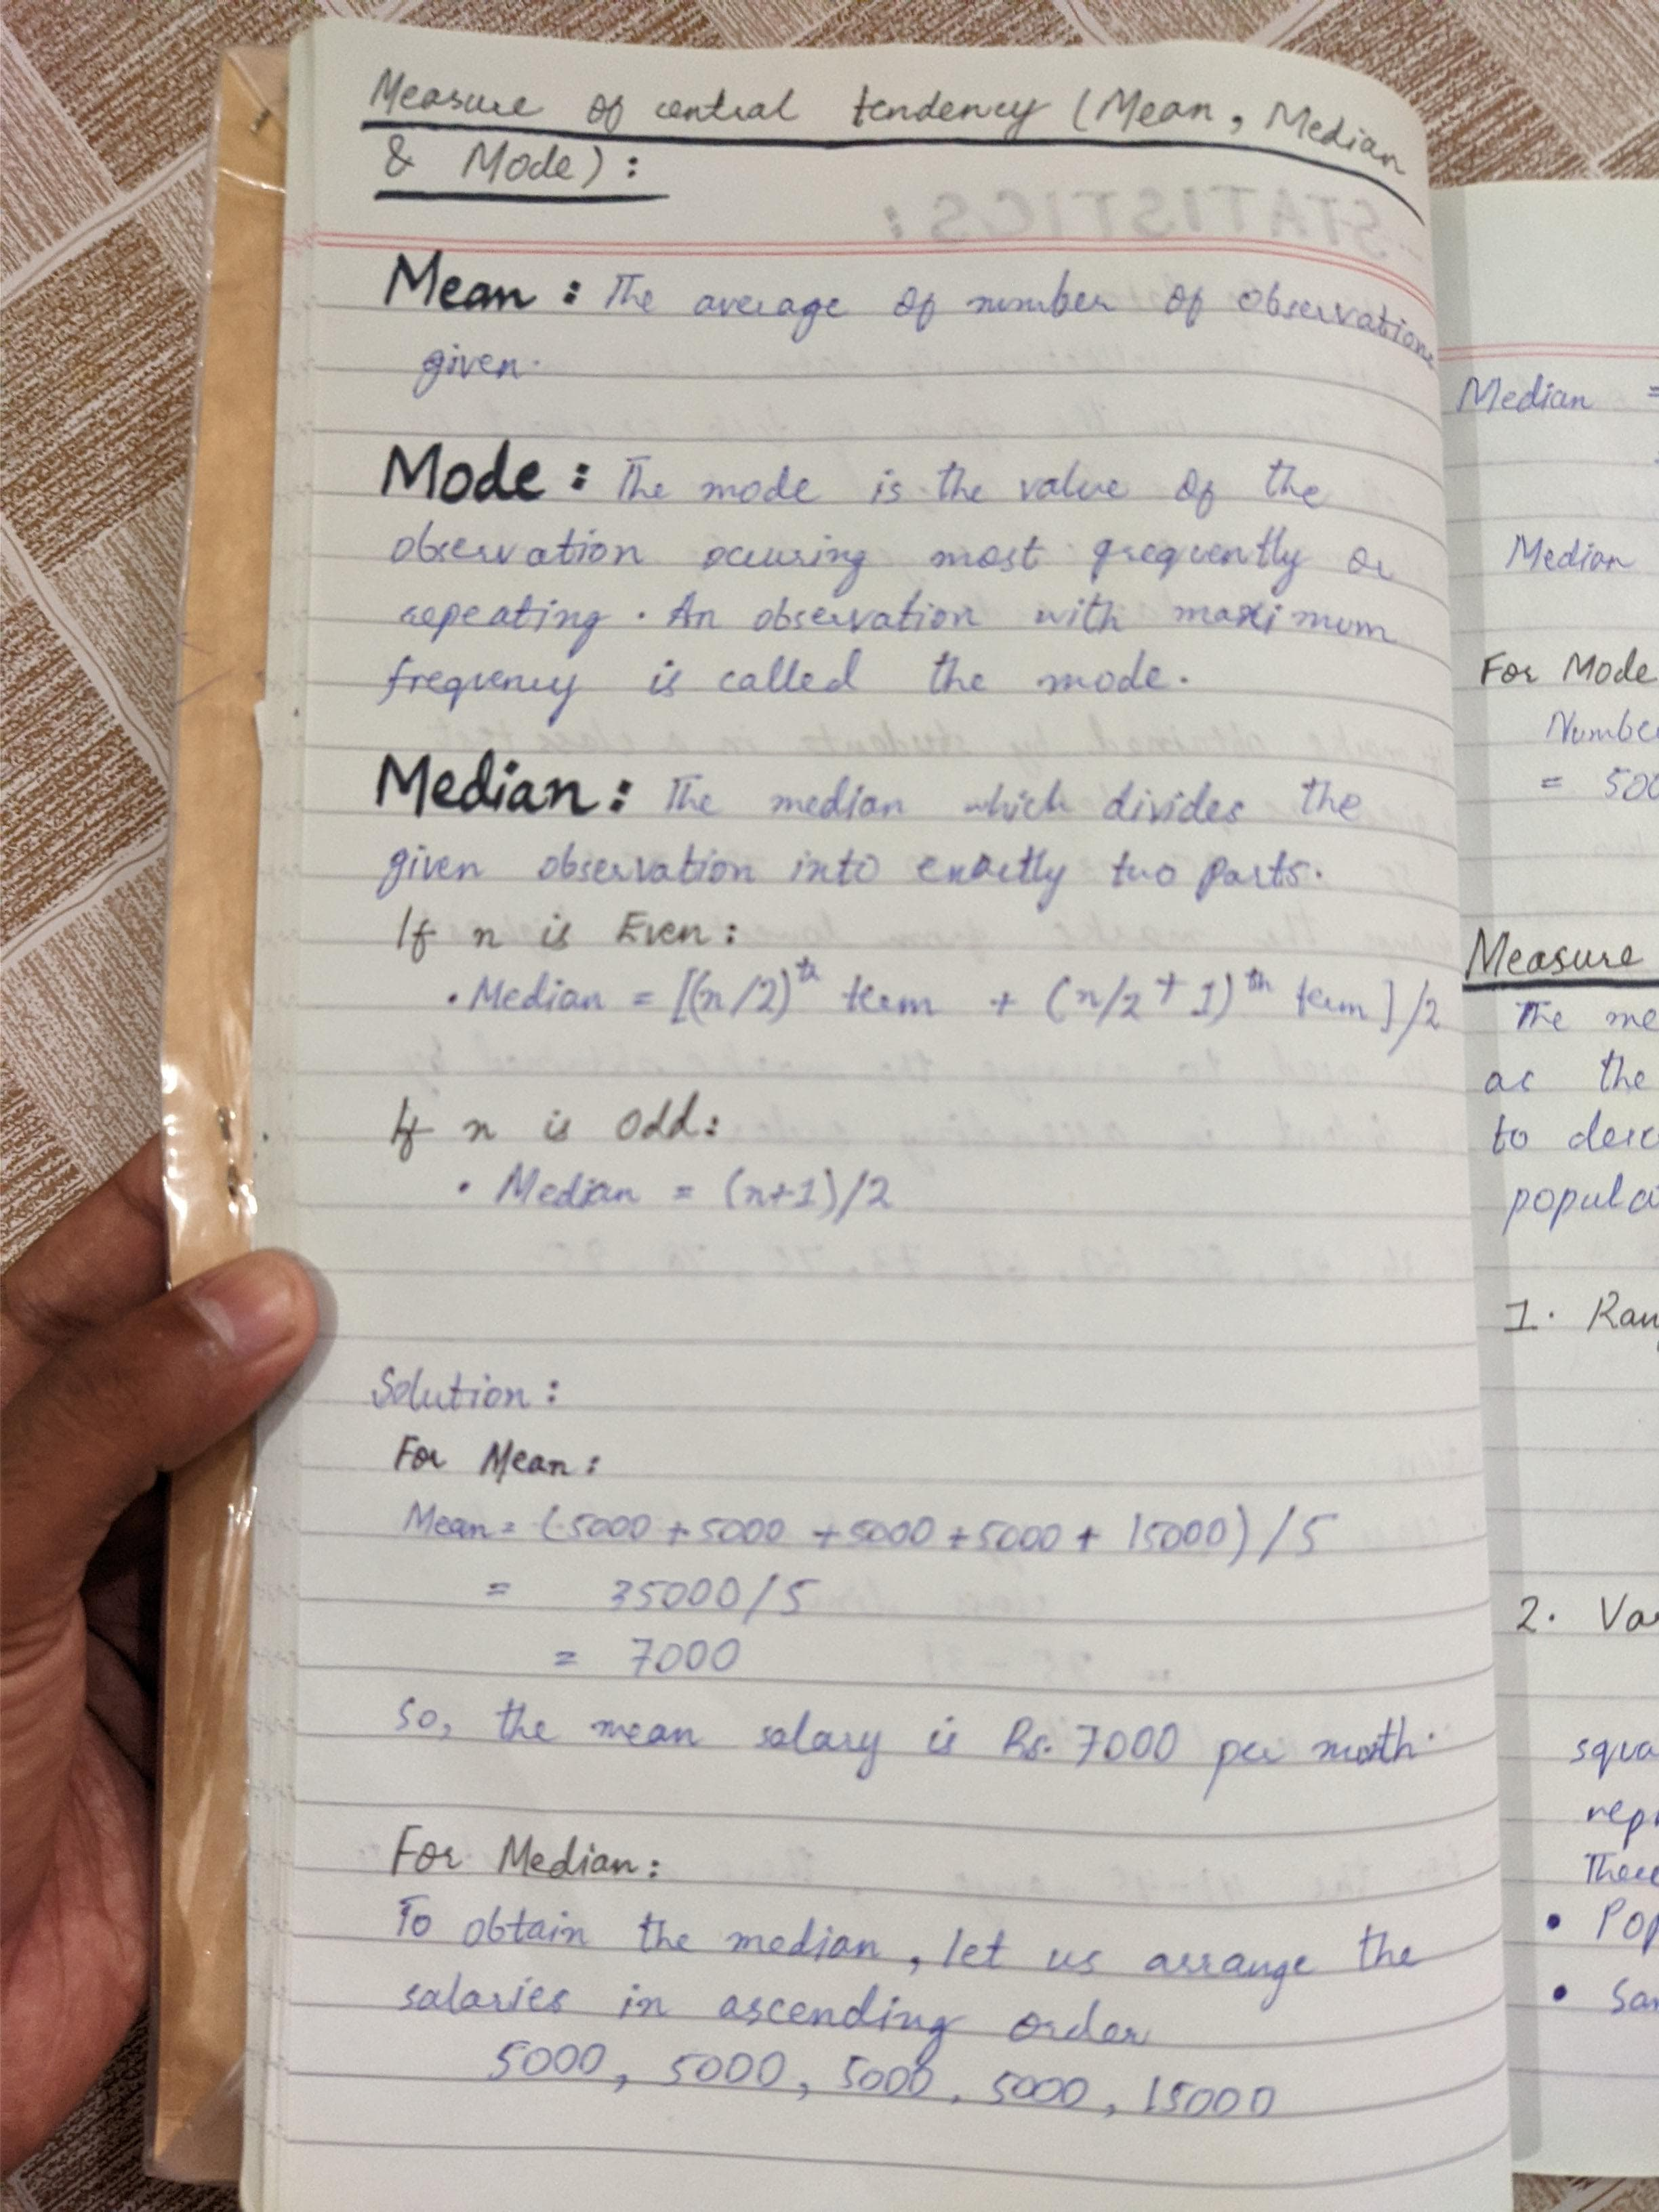 Measure of central tendency (Mean, Median
& Mode) :
Mean : The average of number of observations
given.
Mode : The mode is the value of the
observation occuring most frequently or
repeating. An observation with maximum
frequency is called the mode.
Median : The median which divides the
given observation into exactly two parts.
If n is Even :
• Median = [(n/2)th term + (n/2 + 1)th term]/2
If n is Odd :
• Median = (n+1)/2
Solution :
For Mean :
Mean = (5000 + 5000 + 5000 + 5000 + 15000)/5
= 35000/5
= 7000
so, the mean salary is Rs. 7000 per month.
For Median :
To obtain the median, let us arrange the
salaries in ascending order
5000, 5000, 5000, 5000, 15000
Median =
Median
For Mode
= 500
Measure
The me
as the
to desc
popula
1. Ran
2. Va
squa
rep
There
• Pop
• Sa